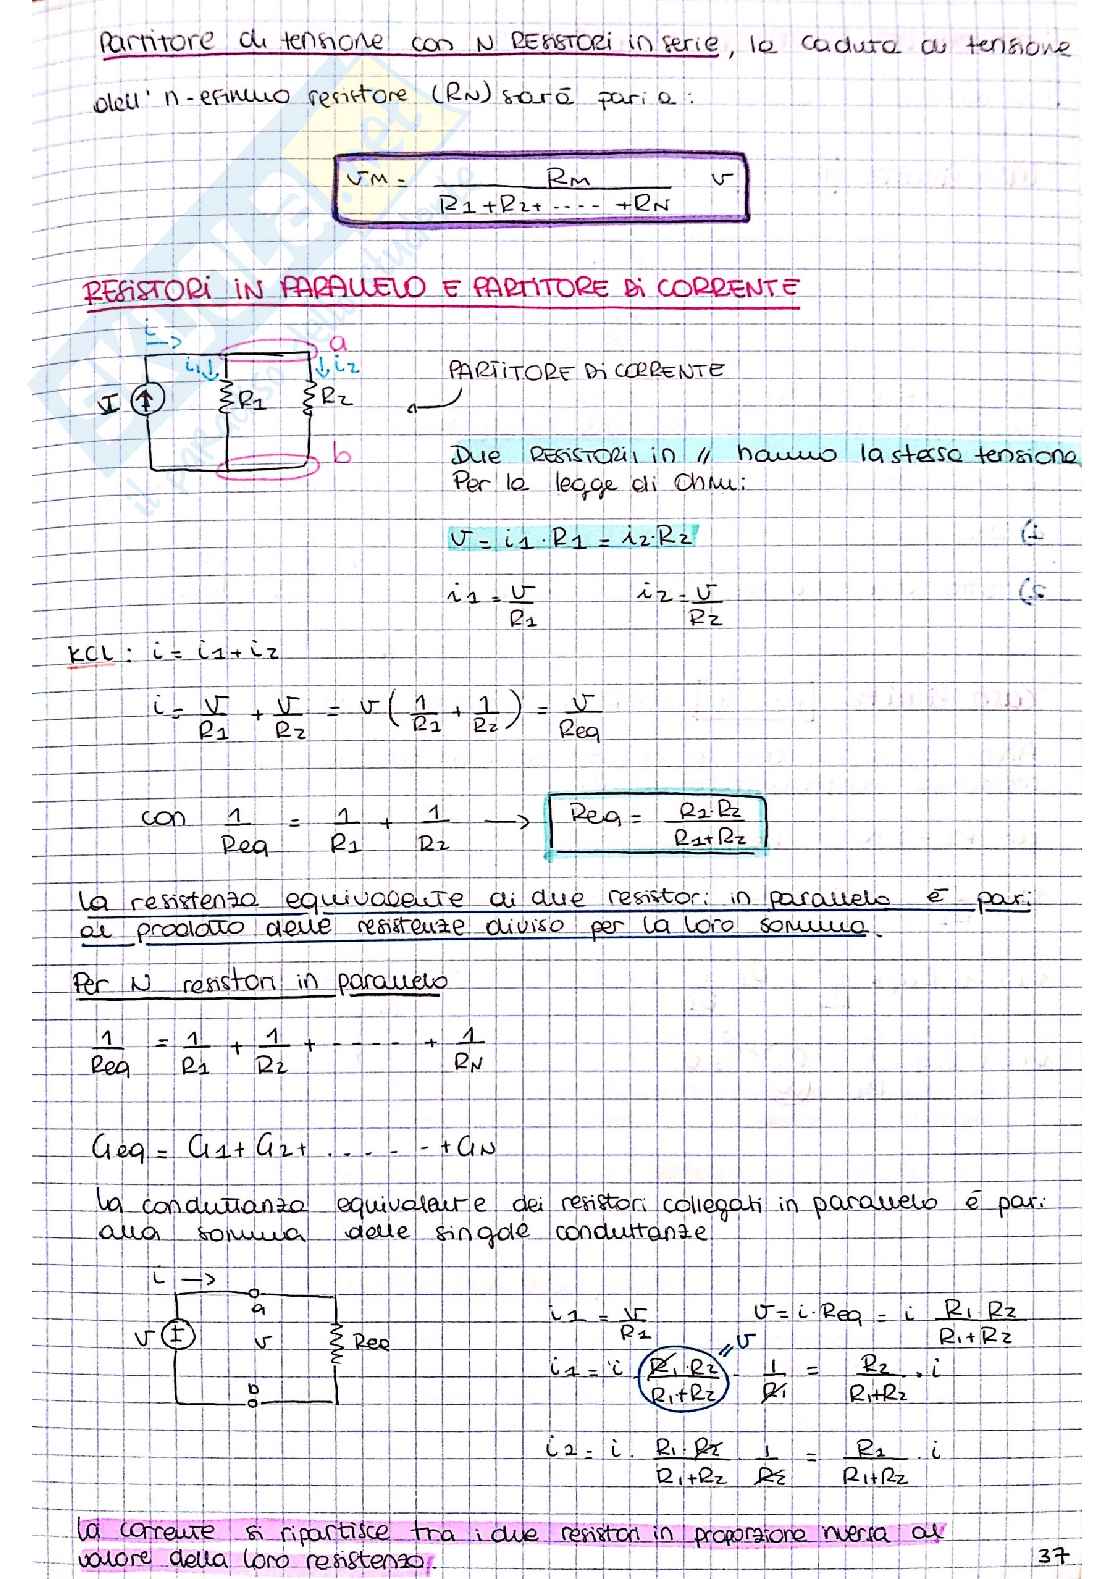 Partitore di tensione con N RESISTORI in serie, la caduta di tensione
dell' n-esimo resistore (RN) sarà pari a:
vM = RM / (R1+R2+ ---- +RN) v
RESISTORI IN PARALLELO E PARTITORE DI CORRENTE
i →
a
i1 ↓
↓ i2
I
R1
R2
b
PARTITORE DI CORRENTE
Due RESISTORI, in // hanno la stessa tensione
Per la legge di Ohm:
v = i1·R1 = i2·R2
i1 = v/R1 i2 = v/R2
KCL: i = i1+i2
i = v/R1 + v/R2 = v(1/R1 + 1/R2) = v/Req
con 1/Req = 1/R1 + 1/R2 → Req = R1·R2 / (R1+R2)
la resistenza equivalente di due resistori in parallelo è pari
al prodotto delle resistenze diviso per la loro somma.
Per N resistori in parallelo
1/Req = 1/R1 + 1/R2 + ----- + 1/RN
Geq = G1+G2+ ------ +GN
la conduttanza equivalente dei resistori collegati in parallelo è pari
alla somma delle singole conduttanze
i →
a
v
v
Req
b
i1 = v/R1 v = i·Req = i R1·R2 / (R1+R2)
i1 = i R1·R2 / (R1+R2) · 1/R1 = R2 / (R1+R2) · i
// v
i2 = i · R1·R2 / (R1+R2) 1/R2 = R1 / (R1+R2) · i
la corrente si ripartisce tra i due resistori in proporzione inversa al
valore della loro resistenza.
37